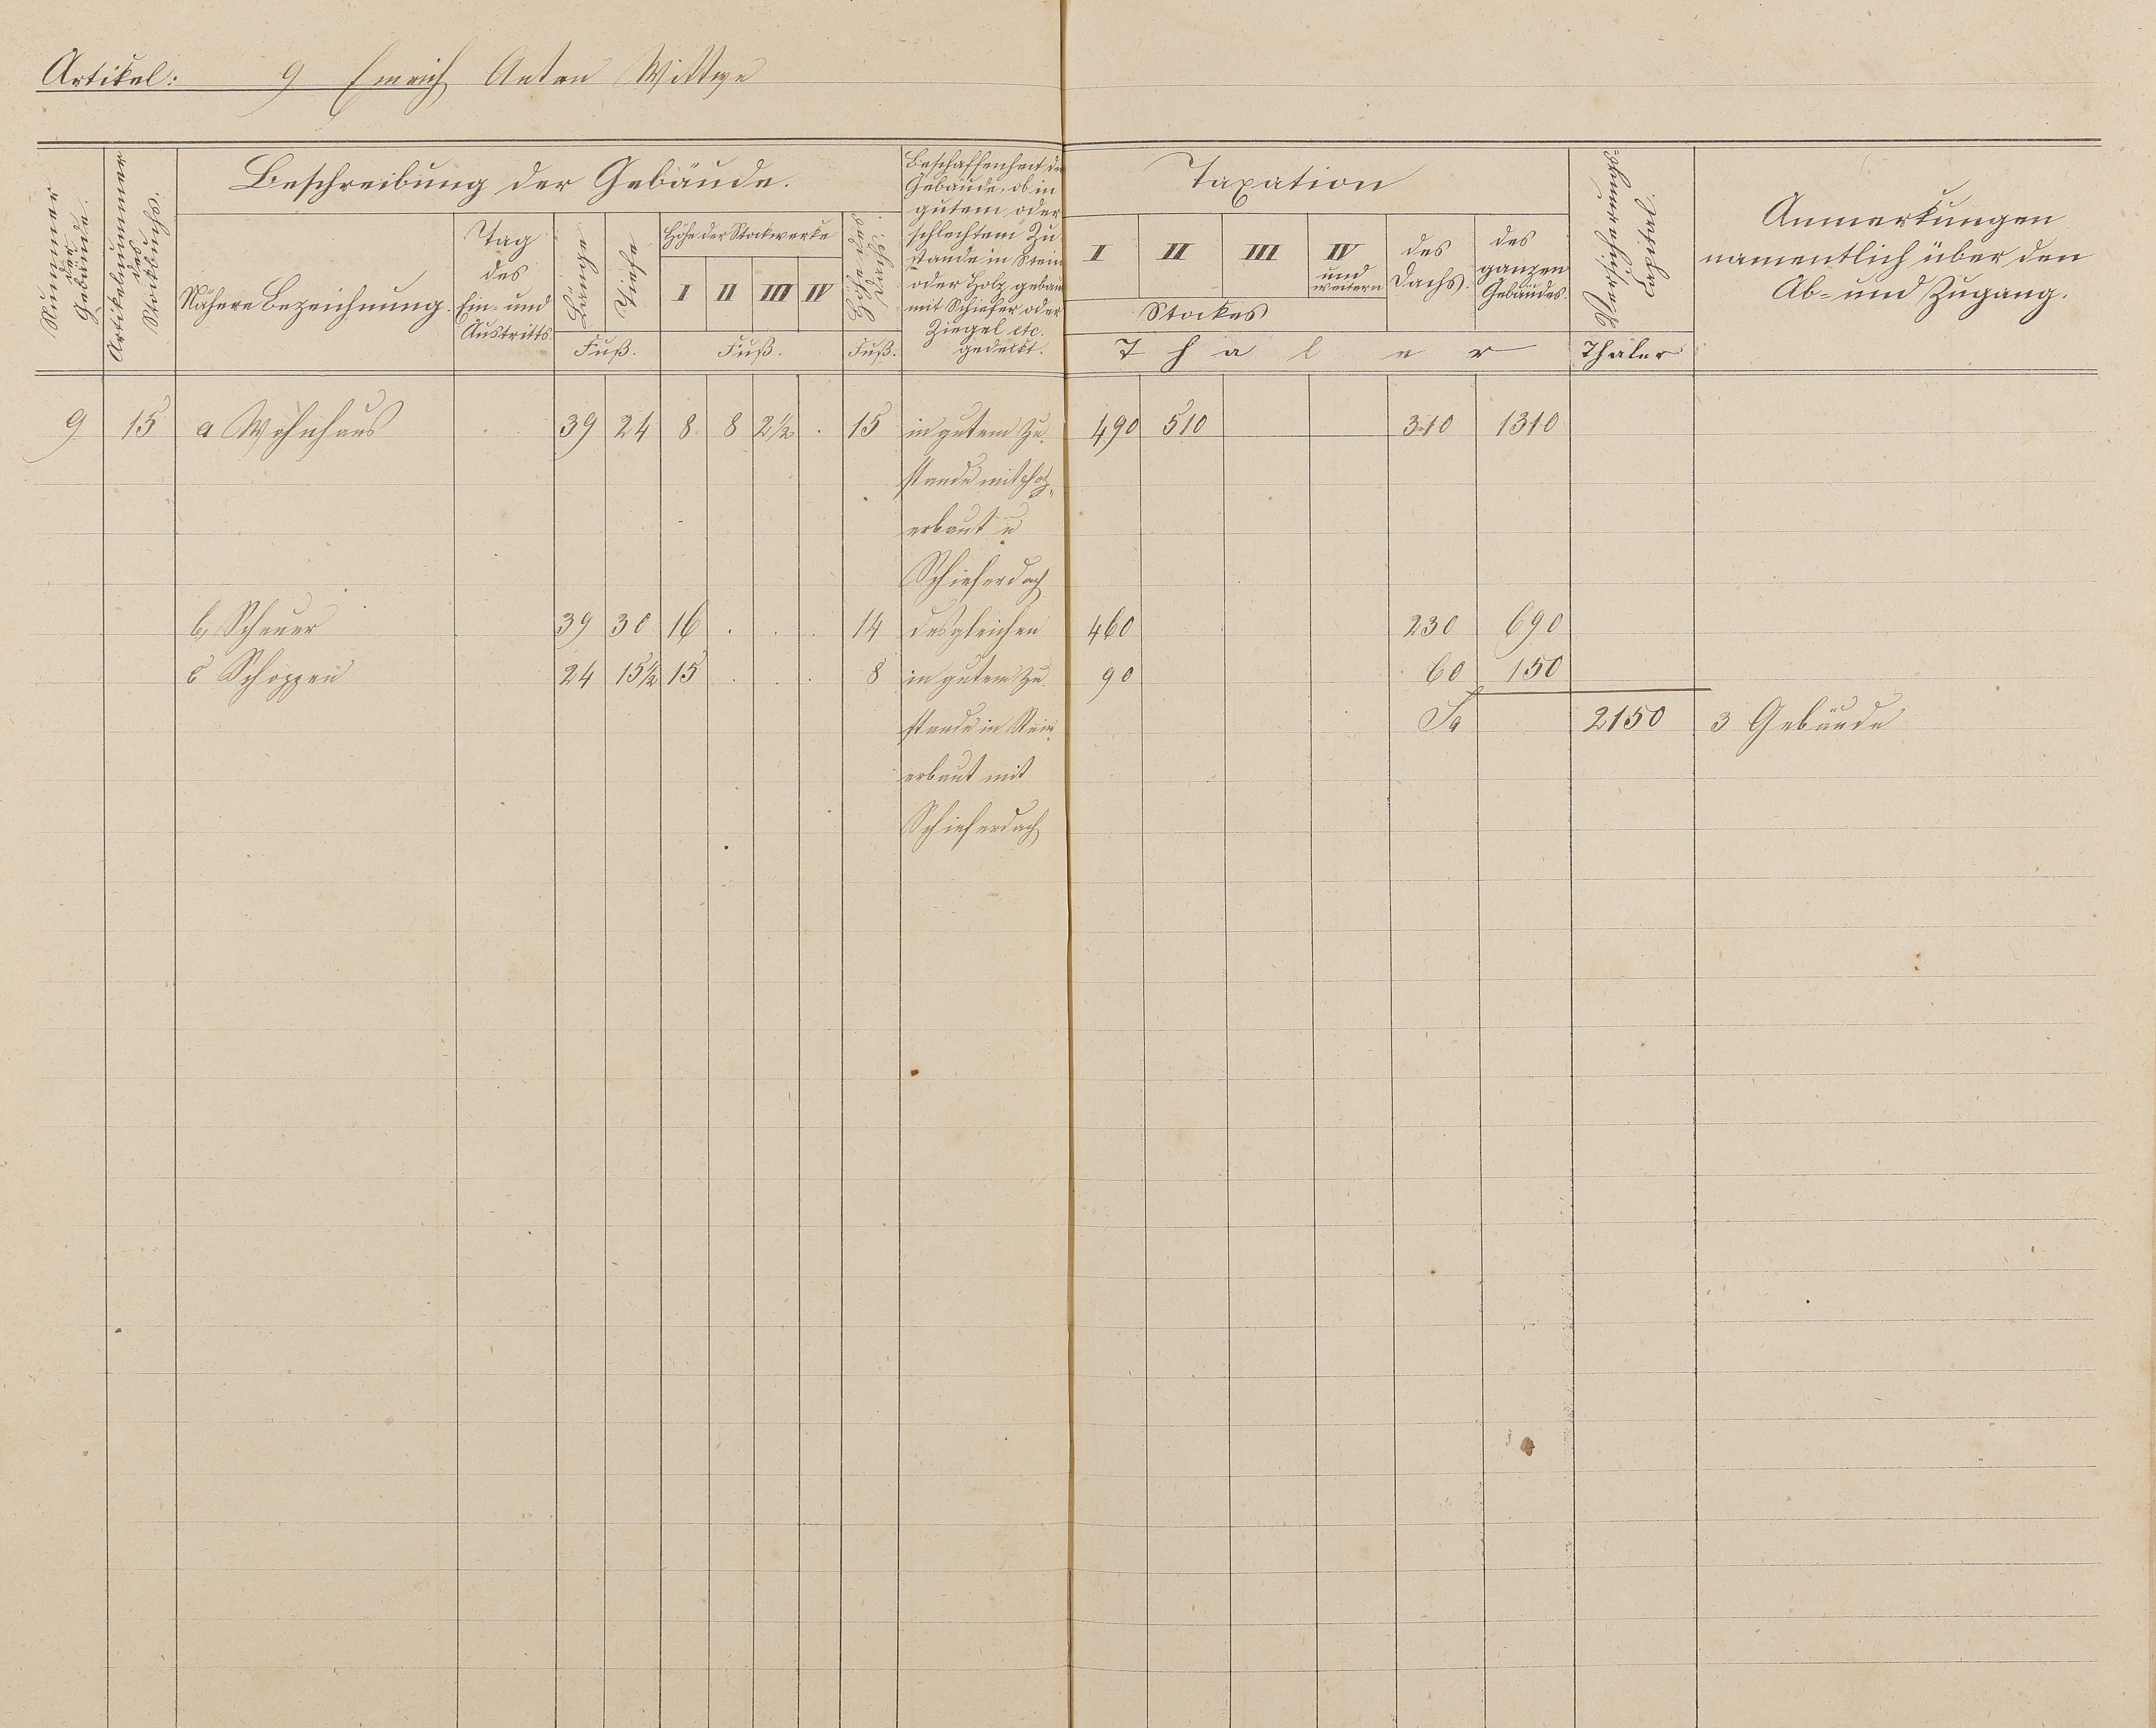 Artikel: 9 Emrich Anton Wittwe
Nummer der Gebäude.
Artikelnummer des Stockbuchs.
Beschreibung der Gebäude.
Nähere Bezeichnung.
Tag des Ein- und Austritts.
Länge
Tiefe
Fuß.
Höhe der Stockwerke
I II III IV
Fuß.
Höhe des Dachs.
Fuß.
Beschaffenheit der
Gebäude, ob in
gutem oder
schlechtem Zu
stande in Stein
oder Holz gebaut
mit Schiefer oder
Ziegel etc.
gedeckt.
Taxation
I II III IV und weitern
Stockes
des Dachs.
des ganzen Gebäudes.
Thaler
Thaler
Anmerkungen
namentlich über den
Ab- und Zugang.
9 15 a Wohnhaus 39 24 8 8 2½ . 15 in gutem Zu- 490 510 310 1310
stande mit Holz
erbaut u
Schieferdach
b, Scheuer 39 30 16 . . . 14 desgleichen 460 230 690
c Schoppen 24 15½ 15 . . . 8 in gutem Zu- 90 60 150
stande in Stein Sa 2150 3 Gebäude
erbaut mit
Schieferdach